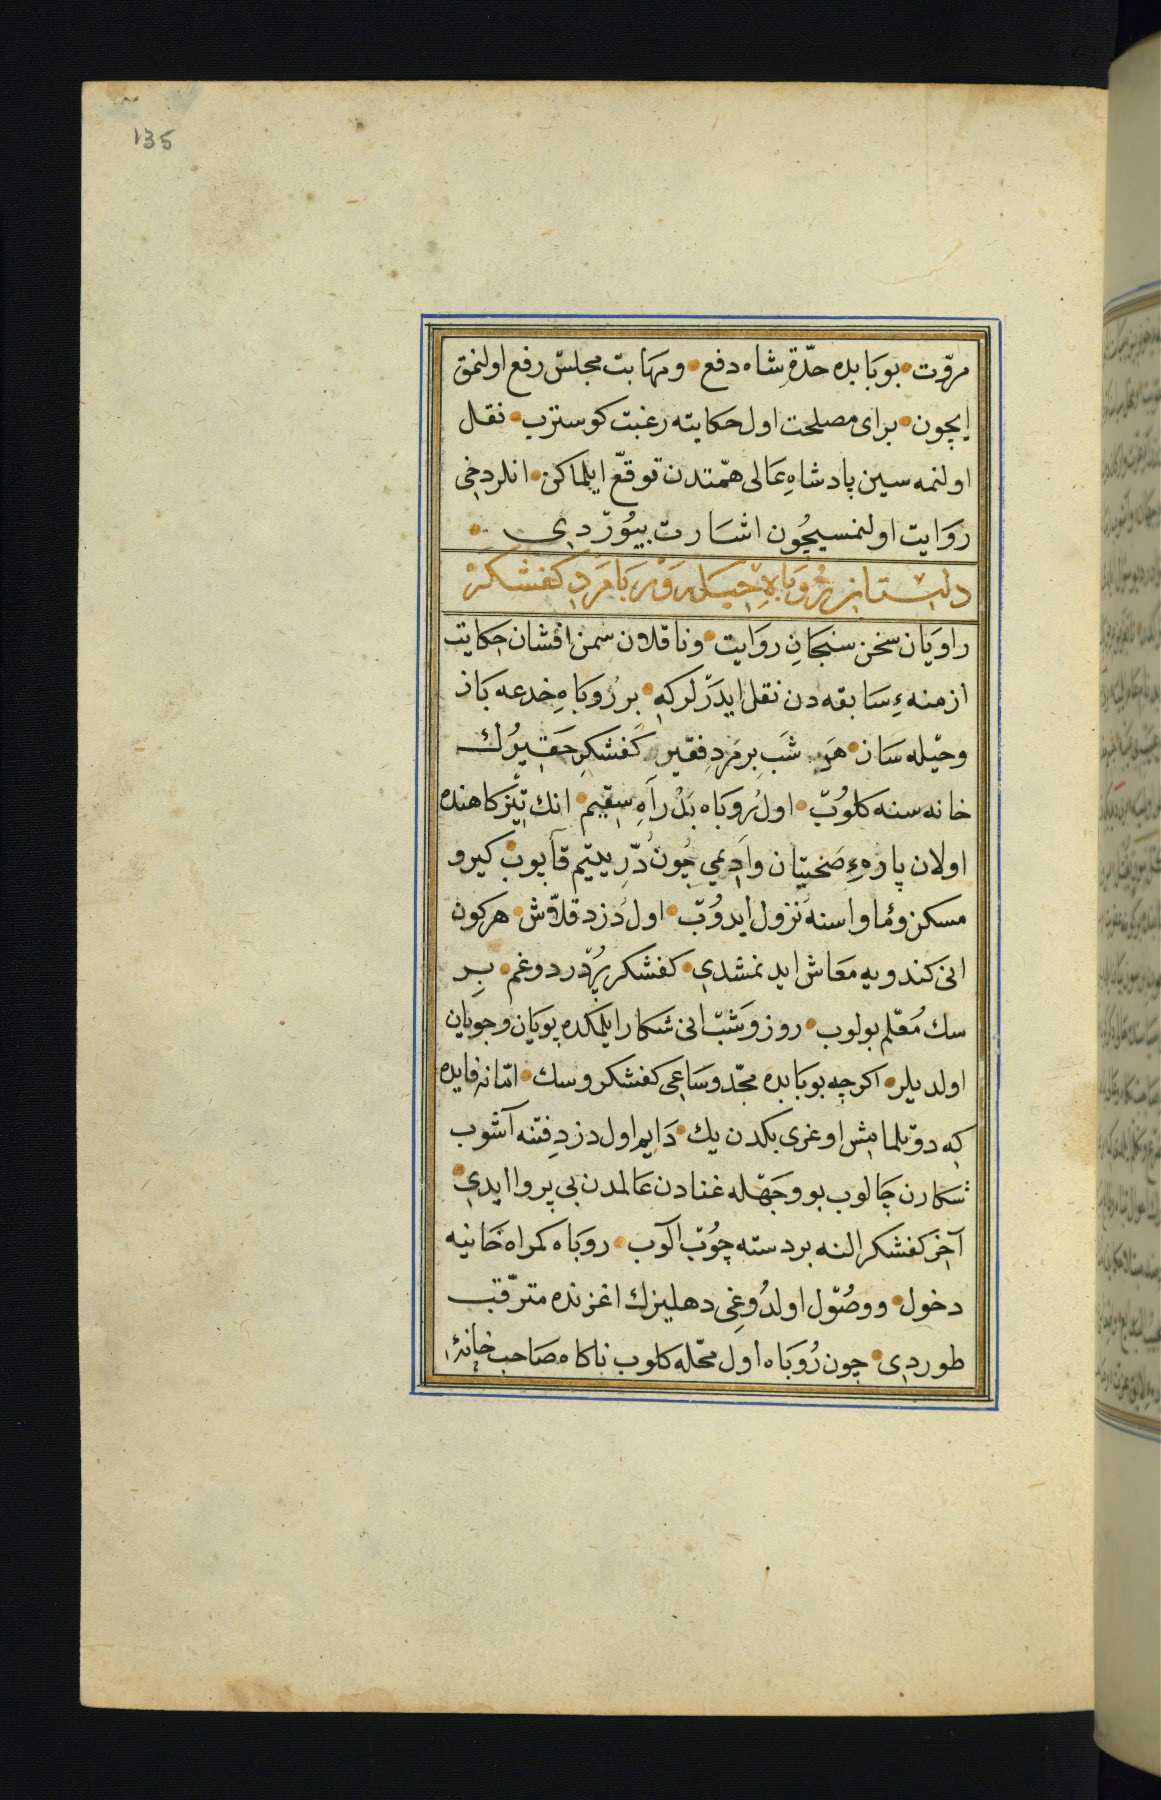 135
مروّت بو بابده حدّةِ شاه دفع ومهابت مجلس رفع اولنمق
ایچون برای مصلحت اول حکایته رغبت کوستررب نقل
اولنمه سین پادشاهِ عالی همّتدن توقعّ ایلماکن انلر دخی
روایت اولنمسیچون اشارت بیُوردی
داستان رُوباهِ حیله رَوْر با مَردِ کفشکر
راویان سخن سنجانِ روایت وناقلان سمن افشان حکایت
ازمنهٔ سابقه دن نقل ایدرلر که بر رُوباهِ خدعه باز
وحیله سان هر شبِ بر مردِ فقیر کفشکرِ حقیرُك
خانه سنه کلوُب اول رُوباه بدْ راهِ سقیم انك
اولان پارهٔ سختیان وادیمی چُون دُرِّ یتیم قاپوب کیرو
مسکن ومأواسنه نزول ایدوُب اول دزد قلاّش هر کون
انی کندویه معاش ایدنمشدی کفشکر پُر درد وغم بِر
سك مُعلّم بولوب روز وشب انی شکار ایلمکده پویان وجویان
اولدیلر اکرچه بو بابده مجدّ وساعی کفشکر وسك امّا نه فایده
که دو یلمامش اوغری بکدن یك دایم اول دزدِ فتنه آشوب
شکارن چالوب بو وجهله غنادن عالمدن بی پروا ایدی
آخر کفشکر النه بر دسته چُوب الوب روباه کمراه خانیه
دخول ووصُول اولدُوغی دهلیزك اغزنده مترقّب
طوردی چون رُوباه اول محلّه کلوب ناکاه صاحب خانهٔ